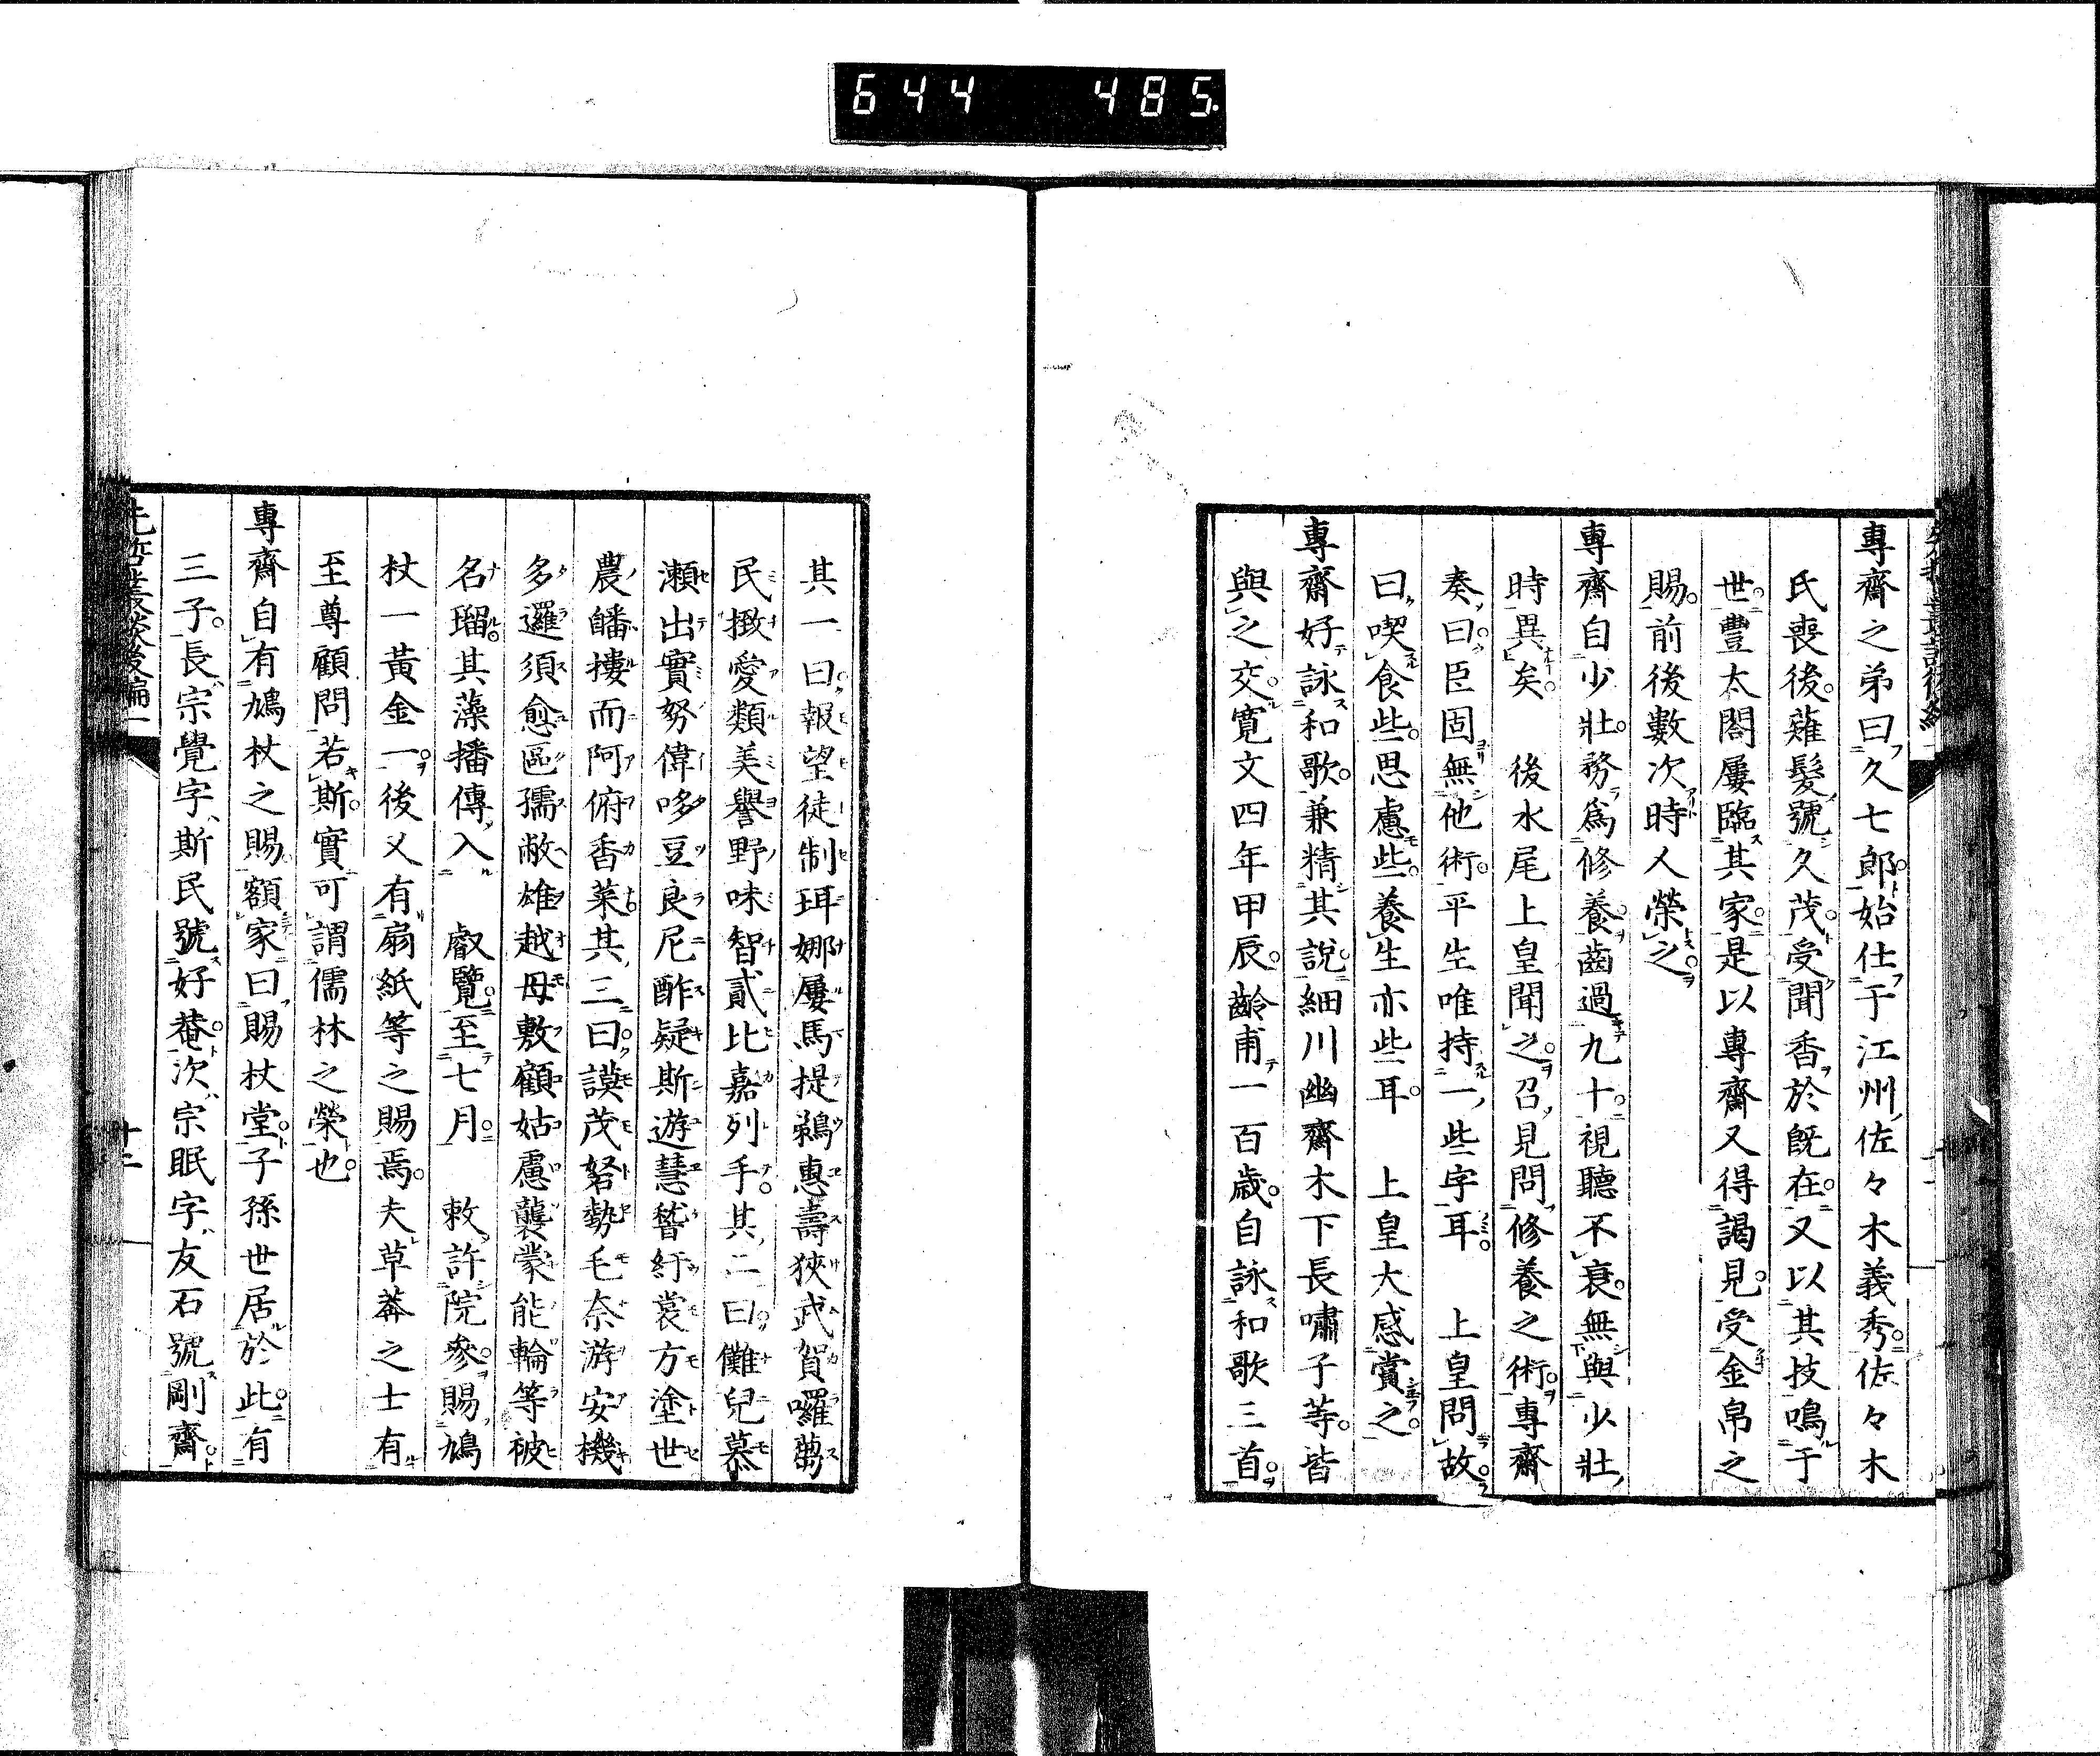 644 485
專齋之弟曰久七郎始仕于江州佐々木義秀佐々木
氏喪後薙髮號久茂受聞香於旣在又以其技鳴于
世豐太閤屢臨其家是以專齋又得謁見受金帛之
賜前後數次時人榮之
專齋自少壯務爲修養齒過九十視聽不衰無與少壯
時異矣　後水尾上皇聞之召見問修養之術專齋
奏曰臣固無他術平生唯持一些字耳　上皇問故
曰喫食些思慮些養生亦些耳　上皇大感賞之
專齋好詠和歌兼精其說細川幽齋木下長嘯子等皆
與之交寬文四年甲辰齡甫一百歲自詠和歌三首
其一曰報望徒制珥娜屢馬提鵜惠壽狹武賀囉蒭
民撖愛類美譽野味智貳比嘉列手其二曰儺兒慕
瀨出實努偉哆豆良尼酢疑斯遊慧瞀紆裳方塗世
農皤摟而阿俯香菜其三曰謨茂努勢毛奈游安機
多邏須愈區孺敝雄越母敷顧姑慮襲蒙能輪等被
名瑠其藻播傳入　叡覽至七月　敕許院參賜鳩
杖一黃金一後又有扇紙等之賜焉夫草莽之士有
至尊顧問若斯實可謂儒林之榮也
專齋自有鳩杖之賜額家曰賜杖堂子孫世居於此有
三子長宗覺字斯民號好菴次宗眠字友石號剛齋
先哲叢談後編一
十二